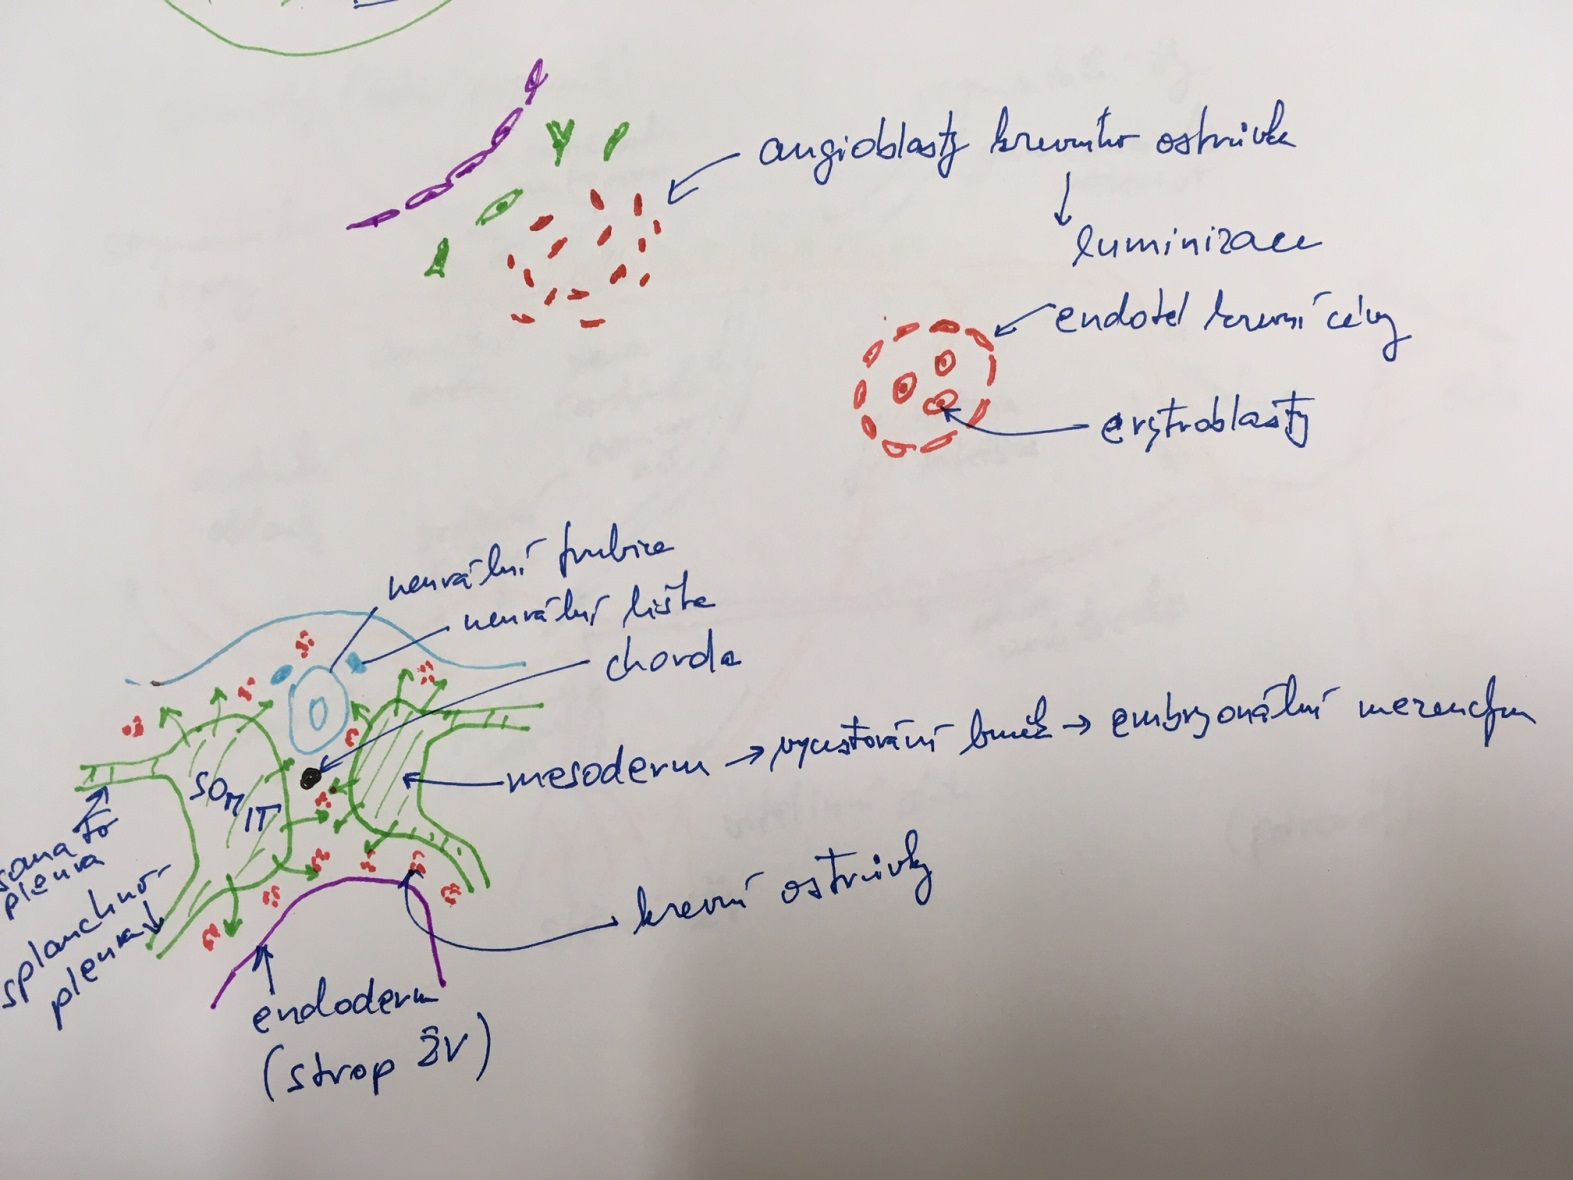 angioblasty krevního ostrůvku
↓
luminizace
endotel krevní cévy
erytroblasty
neurální trubice
neurální lišta
chorda
SOMIT
mesoderm → vycestování buněk → embryonální mezenchym
somato
pleura
splanchno-
pleura
krevní ostrůvky
endoderm
(strop ŽV)